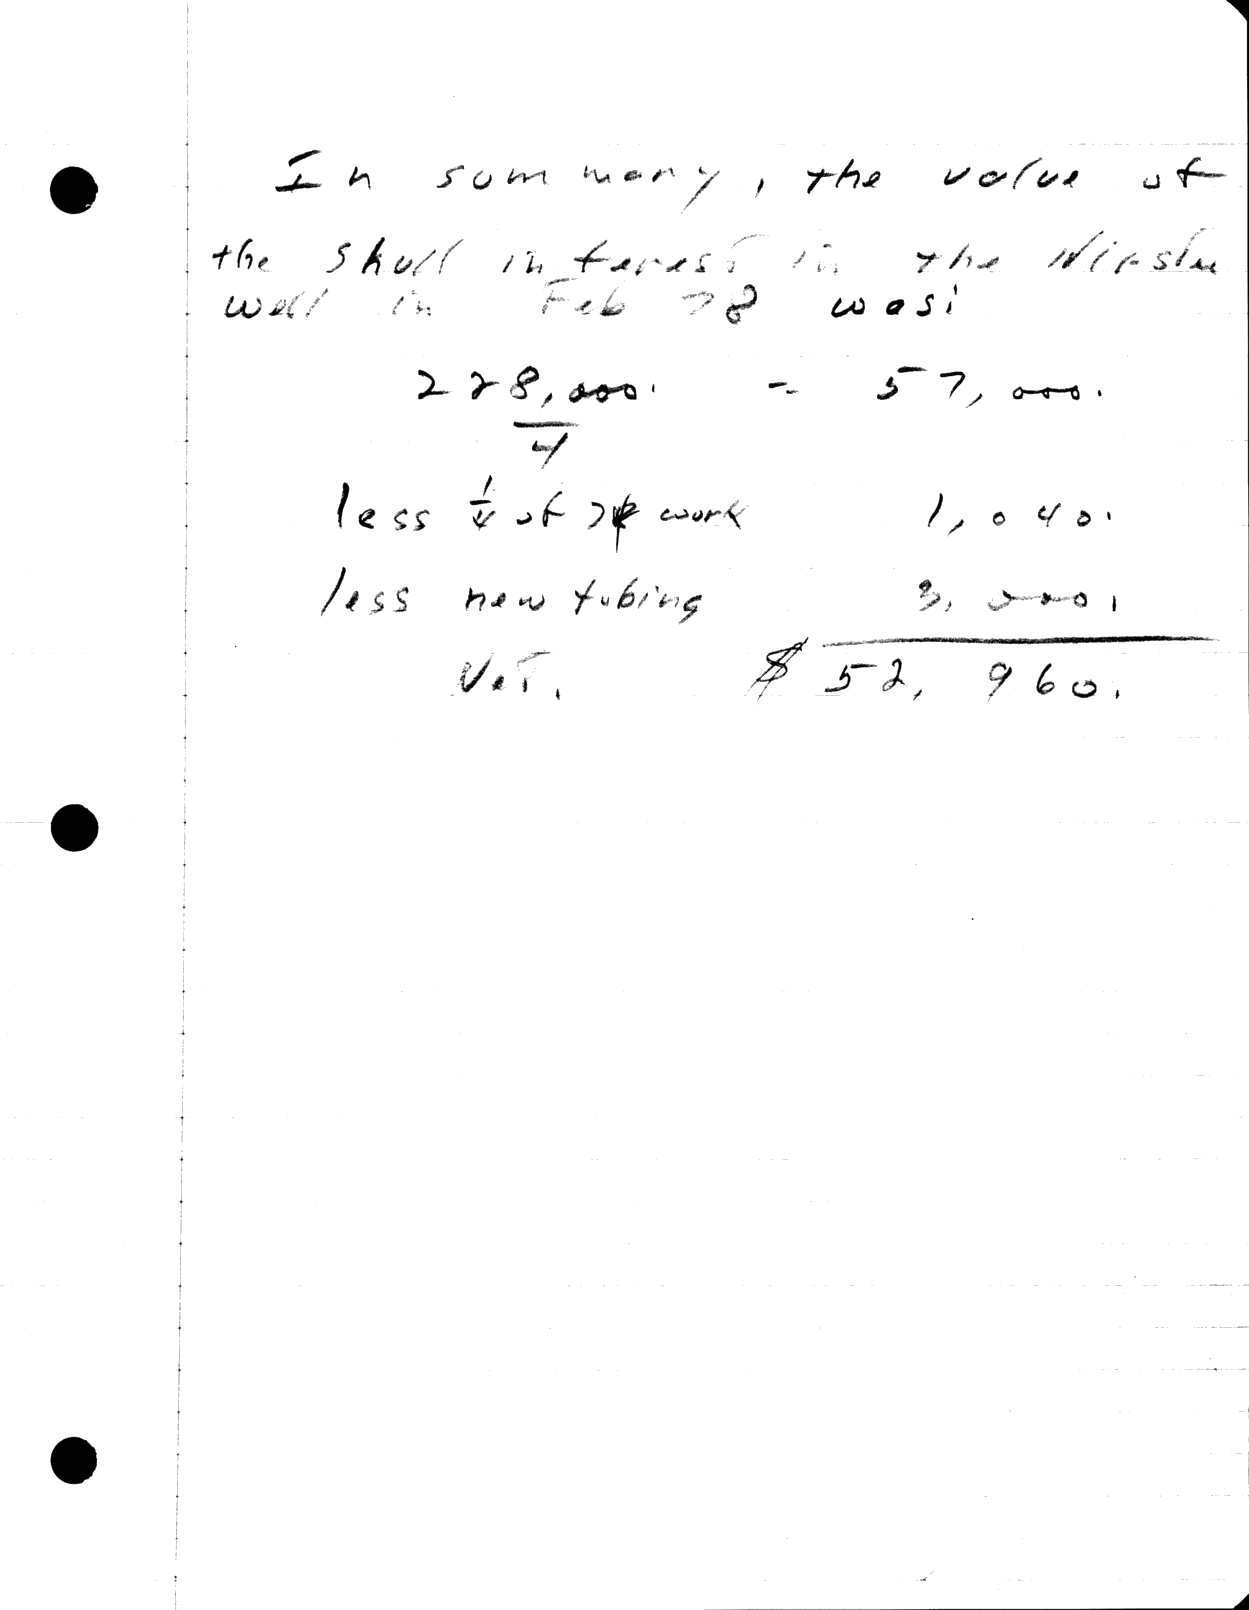 In summary, the value of
the Shull interest in the
well in Feb 78 was:
228,000. = 57,000.
4
less 1/4 of work 1,040.
less new tubing 3,000.
Net. $ 52,960.